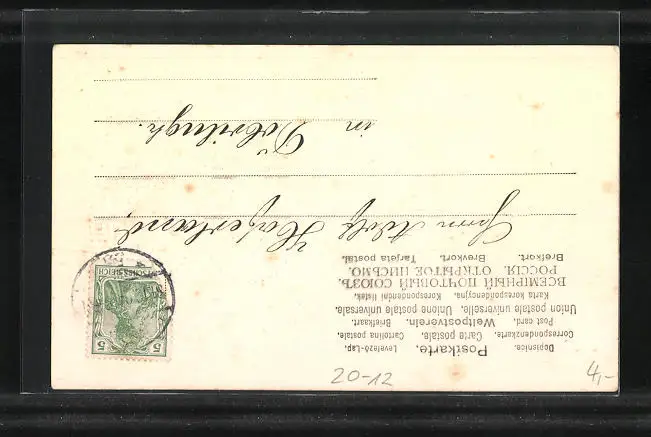 Dopisnice. Postkarte. Levelező-Lap.
Correspondenzkarte. Carte postale. Cartolina postale.
Post card. Weltpostverein. Briefkaart.
Union postale universelle. Unione postale universale.
Karta korespondencyjna. Korespondenční lístek.
ВСЕМІРНЫЙ ПОЧТОВЫЙ СОЮЗЪ.
РОССІЯ. ОТКРЫТОЕ ПИСЬМО.
Brefkort. Brevkort. Tarjeta postal.
5 5
Herrn Adolf Haferland,
in Döbrilugk.
20-12
4,-